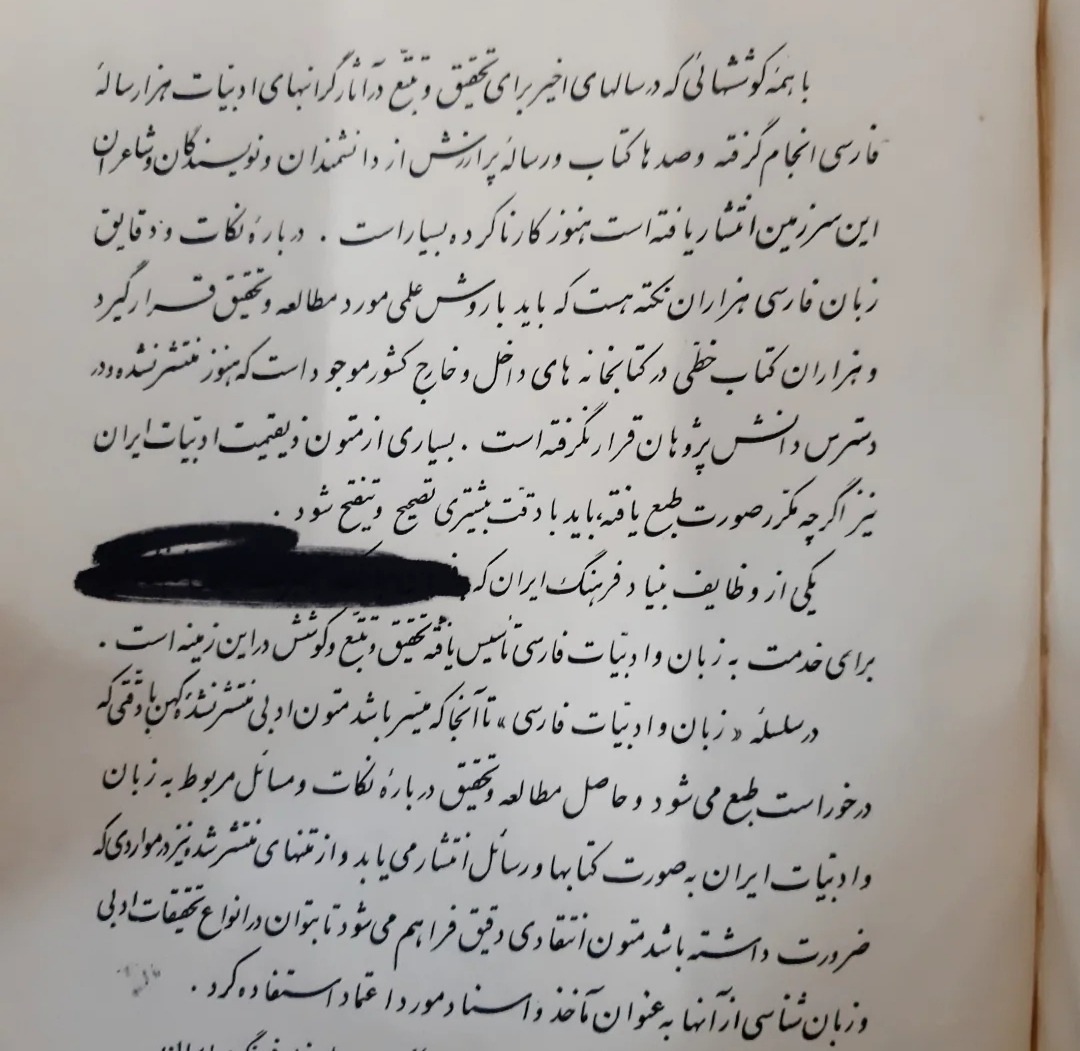 با همهٔ کوششهائی که در سالهای اخیر برای تحقیق و تتبّع در آثار گرانبهای ادبیات هزار سالهٔ
فارسی انجام گرفته و صدها کتاب و رسالهٔ پر ارزش از دانشمندان و نویسندگان و شاعران
این سرزمین انتشار یافته است هنوز کار ناکرده بسیار است . دربارهٔ نکات و دقایق
زبان فارسی هزاران نکته هست که باید با روش علمی مورد مطالعه و تحقیق قرار گیرد
و هزاران کتاب خطّی در کتابخانه های داخل و خارج کشور موجود است که هنوز منتشر نشده و در
دسترس دانش پژوهان قرار نگرفته است . بسیاری از متون ذیقیمت ادبیّات ایران
نیز اگرچه مکرّر صورت طبع یافته، باید با دقّت بیشتری تصحیح و تنقیح شود .
یکی از وظایف بنیاد فرهنگ ایران که
برای خدمت به زبان و ادبیّات فارسی تأسیس یافته تحقیق و تتبّع و کوشش در این زمینه است .
در سلسلهٔ « زبان و ادبیّات فارسی » تا آنجا که میسّر باشد متون ادبی منتشر نشدهٔ کهن با دقّتی که
درخور است طبع می شود و حاصل مطالعه و تحقیق دربارهٔ نکات و مسائل مربوط به زبان
و ادبیّات ایران به صورت کتابها و رسائل انتشار می یابد و از متنهای منتشر شده نیز در مواردی که
ضرورت داشته باشد متون انتقادی دقیق فراهم می شود تا بتوان در انواع تحقیقات ادبی
و زبان شناسی از آنها به عنوان مآخذ و اسناد مورد اعتماد استفاده کرد .